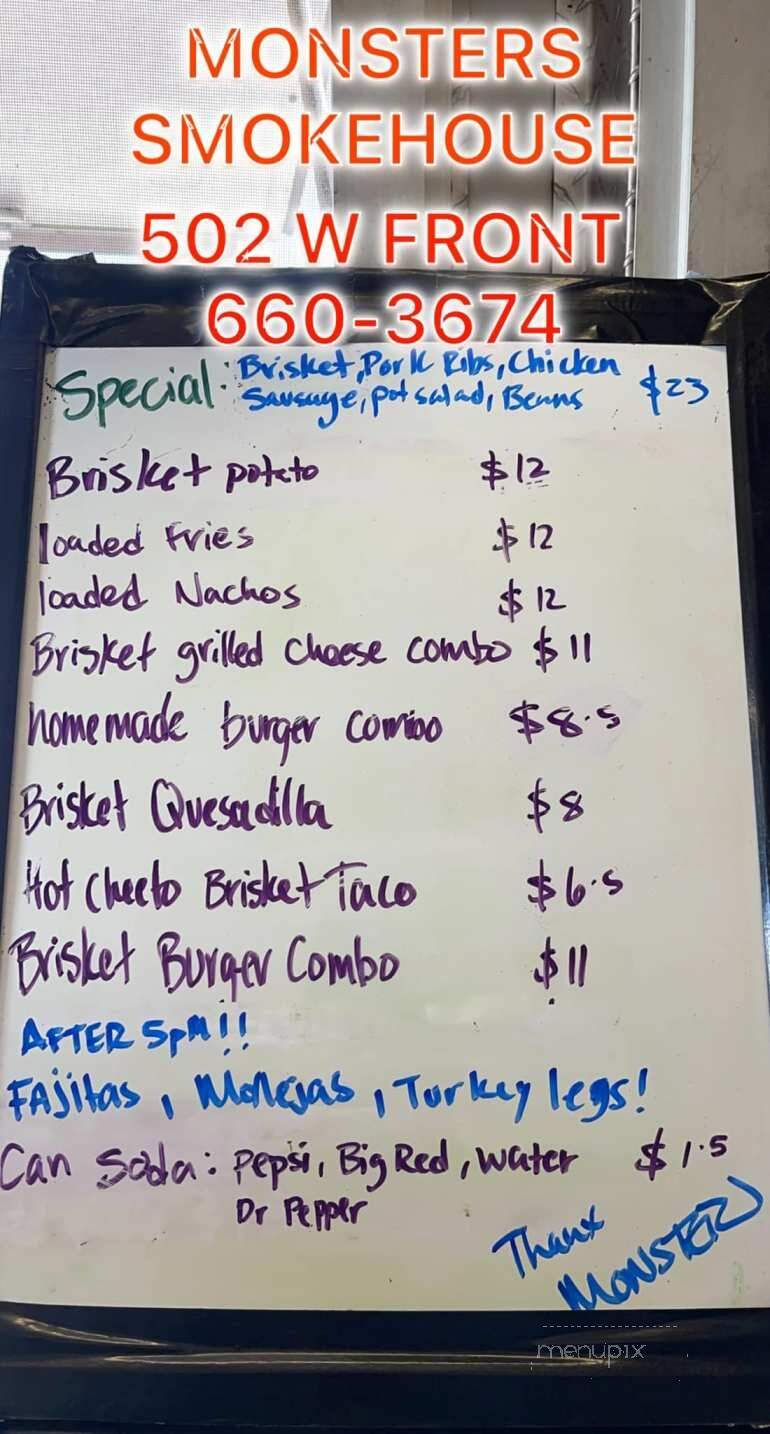 MONSTERS
SMOKEHOUSE
502 W FRONT
660-3674
Special: Brisket, Pork Ribs, Chicken $23
Sausage, pot salad, Beans
Brisket potato $12
loaded Fries $12
loaded Nachos $12
Brisket grilled cheese combo $11
homemade burger combo $8.5
Brisket Quesadilla $8
Hot Cheeto Brisket Taco $6.5
Brisket Burger Combo $11
AFTER 5pm!!
FAjitas, Mollejas, Turkey legs!
Can Soda: Pepsi, Big Red, Water $1.5
Dr Pepper
Thanx
MONSTER
menupix